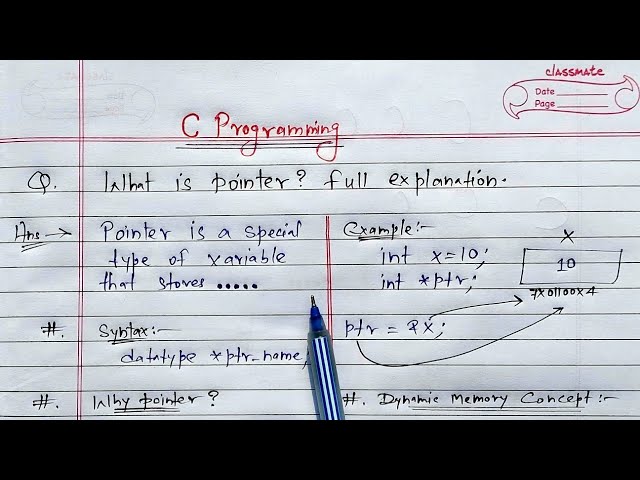 classmate
Date
Page
C Programming
Q. What is pointer? full explanation.
Ans → Pointer is a special
type of variable
that stores .....
#. Syntax:-
datatype *ptr_name;
#. Why pointer?
Example:-
int x=10;
int *ptr;
ptr = &x;
X
10
7x01100x4
#. Dynamic Memory Concept:-